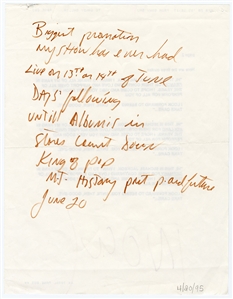 Biggest promotion
My show has ever had
Live on 13th or 14th of June
DAYS following
UNTILL Album is in
Stores Count Down
King of pop
MJ- History past p. and future
June 20
4/20/95